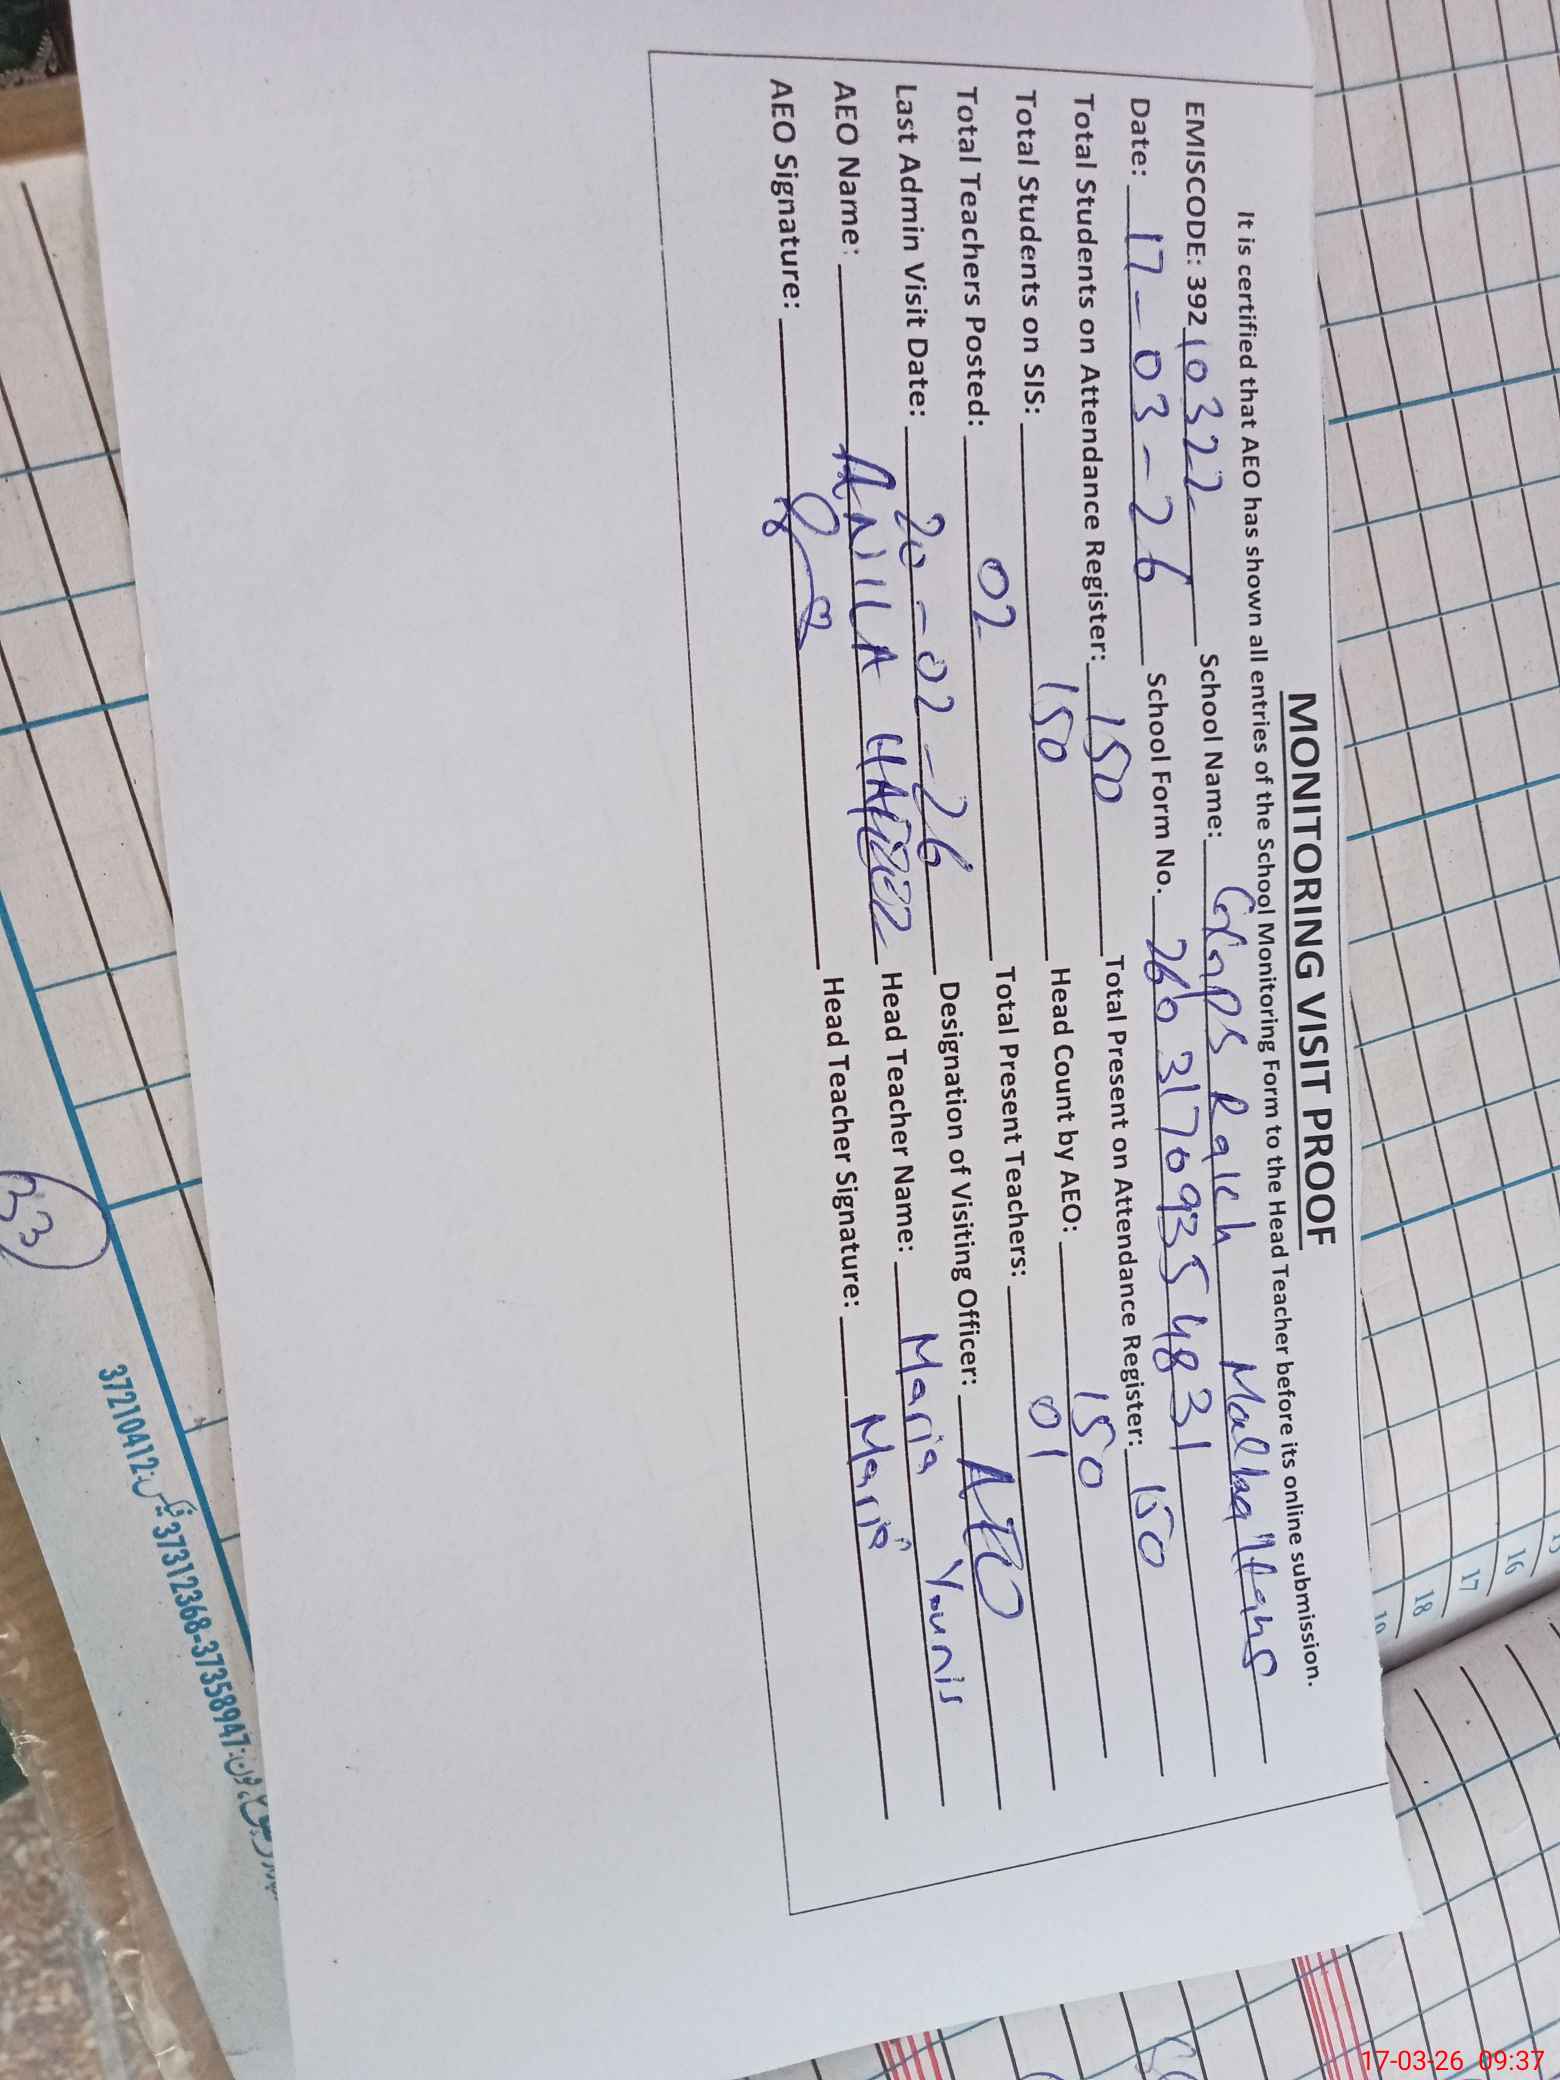 MONITORING VISIT PROOF
It is certified that AEO has shown all entries of the School Monitoring Form to the Head Teacher before its online submission.
EMISCODE: 39210322 School Name: GGPS Raich
Date: 17-03-26 School Form No. 26031709354831
Total Students on Attendance Register: 150 Total Present on Attendance Register: 150
Total Students on SIS: 150 Head Count by AEO: 150
Total Teachers Posted: 02 Total Present Teachers: 01
Last Admin Visit Date: 20-02-26 Designation of Visiting Officer: AEO
AEO Name: ANILA Head Teacher Name: Maria Younis
AEO Signature: Head Teacher Signature: Maria
16
17
18
19
33
37210412 فیکس: 37312368-37358947 فون:
17-03-26 09:37